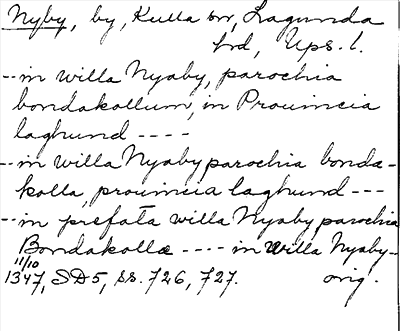 Nyby, by, Kulla sn, Lagunda
hd, Ups. l.
--in willa Nyaby, parochia
bondakollum, in Prouincia
laghund ----
--in willa Nyaby parochia bonda-
kolla, prouincia laghund ---
--in prefata willa Nyaby parochia
Bondakollæ ---- in willa Nyaby--
11/10
1347, SD5, ss. 726, 727. orig.